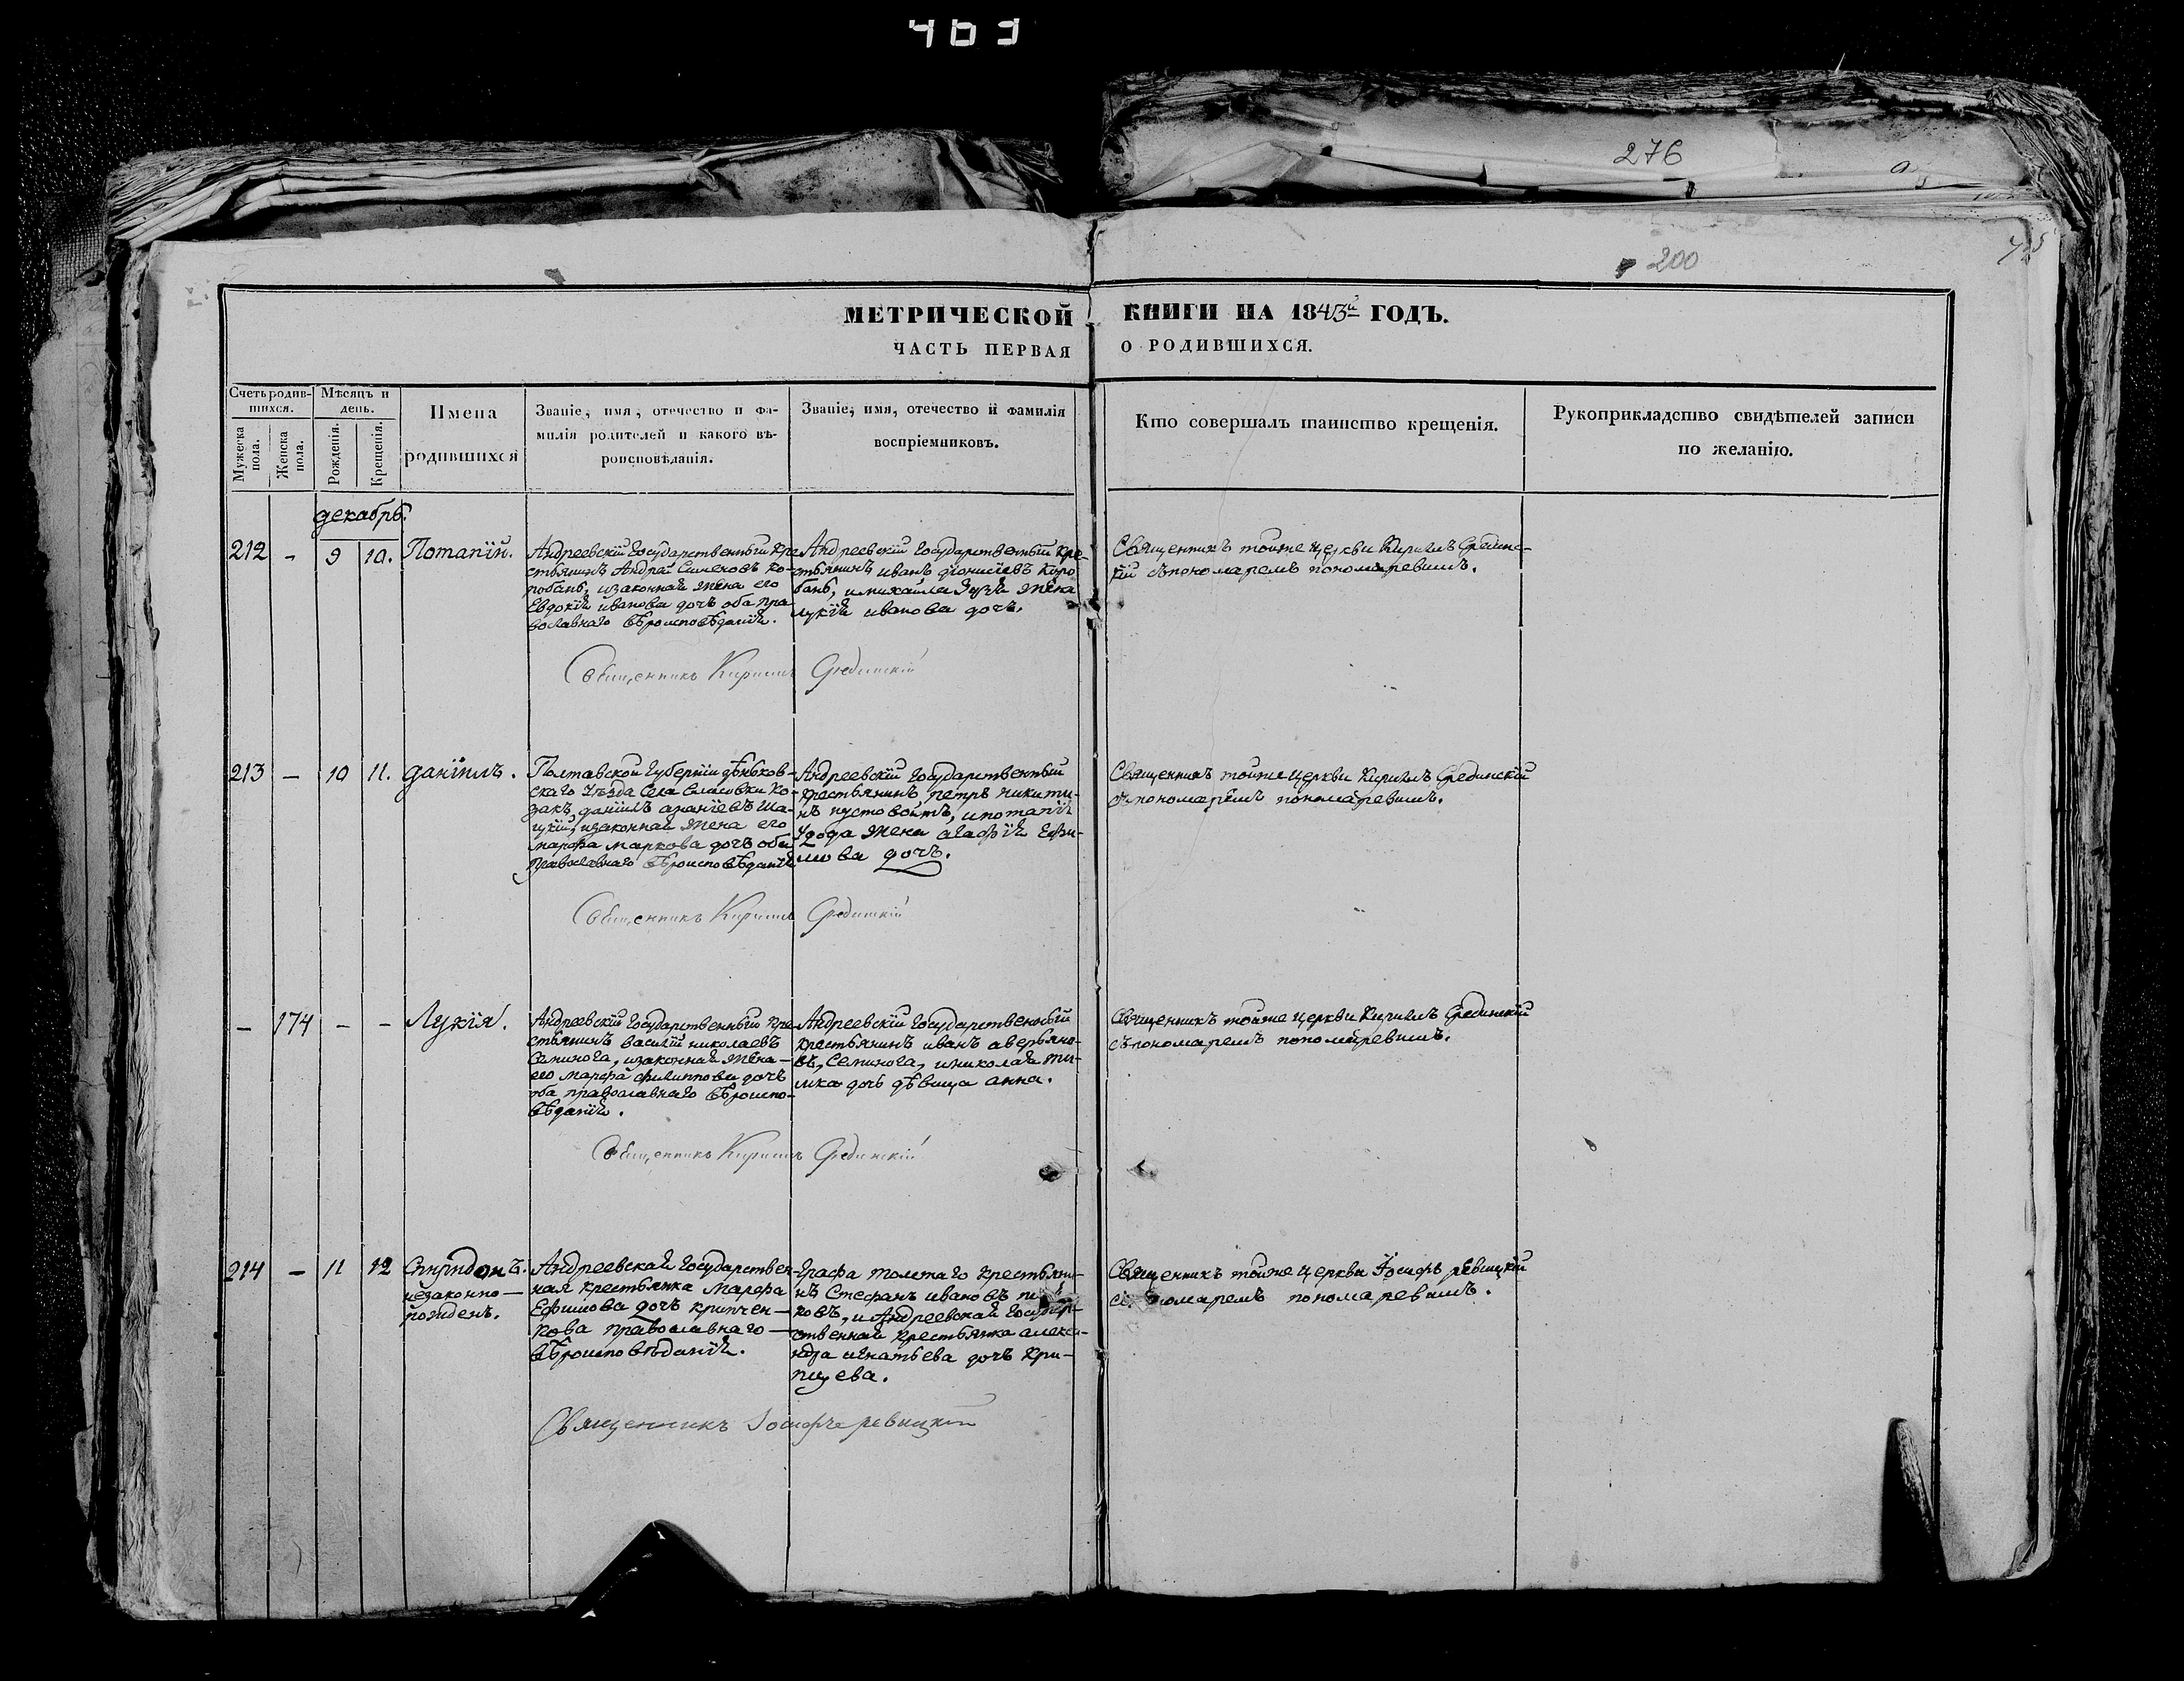 463
276
200
МЕТРИЧЕСКОЙ КНИГИ НА 1843й ГОДЪ.
ЧАСТЬ ПЕРВАЯ О РОДИВШИХСЯ.
Счетъ родив-
шихся.
Мужеска
пола.
Женска
пола.
Мѣсяцъ и
день.
Рожденія.
Крещенія.
Имена
родившихся
Званіе, имя, отечество и фа-
милія родителей и какого вѣ-
роисповѣданія.
Званіе, имя, отечество и фамилія
воспріемниковъ.
Кто совершалъ таинство крещенія.
Рукоприкладство свидѣтелей записи
по желанію.
декабрь.
212 - 9 10. Потапій.
Андреевскій Государственный Кре-
стьянинъ Андрей Сименовъ Ко-
робань, изаконная жена его
Евдокія иванова дочь оба пра-
вославнаго вѣроисповѣданія.
Андреевскій Государственный Кре-
стьянинъ иванъ дионисіевъ Коро
бань, имихайла жена
лукія иванова дочь.
Священникъ тойже церкви Кириллъ Срединс-
кій съпономаремъ пономаревымъ.
Священникъ Кириллъ Срединскій
213 — 10 11. даніилъ.
Полтавской Губерніи зѣньков-
скаго Уѣзда Села Сласовки Ко-
закъ, даніилъ ананіевъ Ша-
цкій, изаконная жена его
марфа маркова дочь оба
Православнаго вѣроисповѣданія
Андреевскій Государственный
Крестьянинъ петръ никити-
нъ пустовойтъ, ипотапія
Удода жена агафія Ефи-
мова дочь.
Священникъ тойже церкви Кириллъ Срединскій
съпономаремъ пономаревымъ.
Священникъ Кириллъ Срединскій
— 174 - - Лукія.
Андреевскій Государственный Кре-
стьянинъ василій николаевъ
Семинога, изаконная жена
его марфа филиппова дочь
оба православнаго вѣроиспо-
вѣданія.
Андреевскій Государственный
Крестьянинъ иванъ аверьяно-
въ, Семинога, иниколая ти-
мка дочь дѣвица анна.
Священникъ тойже церкви Кириллъ Срединскій
съпономаремъ пономаревымъ.
Священникъ Кириллъ Срединскій
214 — 11 12 Спиридонъ.
незаконно—
рожденъ.
Андреевская Государствен-
ная крестьянка Марфа
Ефимова дочь крипчен-
кова православнаго —
вѣроисповѣданія.
Графа толстаго крестьяни-
нъ Стефанъ ивановъ
ковъ, и Андреевская Государ-
ственная крестьянка алекса-
ндра игнатьева дочь Кри-
пцева.
Священникъ тойже церкви Іосифъ ревицкій
пономаревымъ.
Священникъ Іосифъ ревицкій